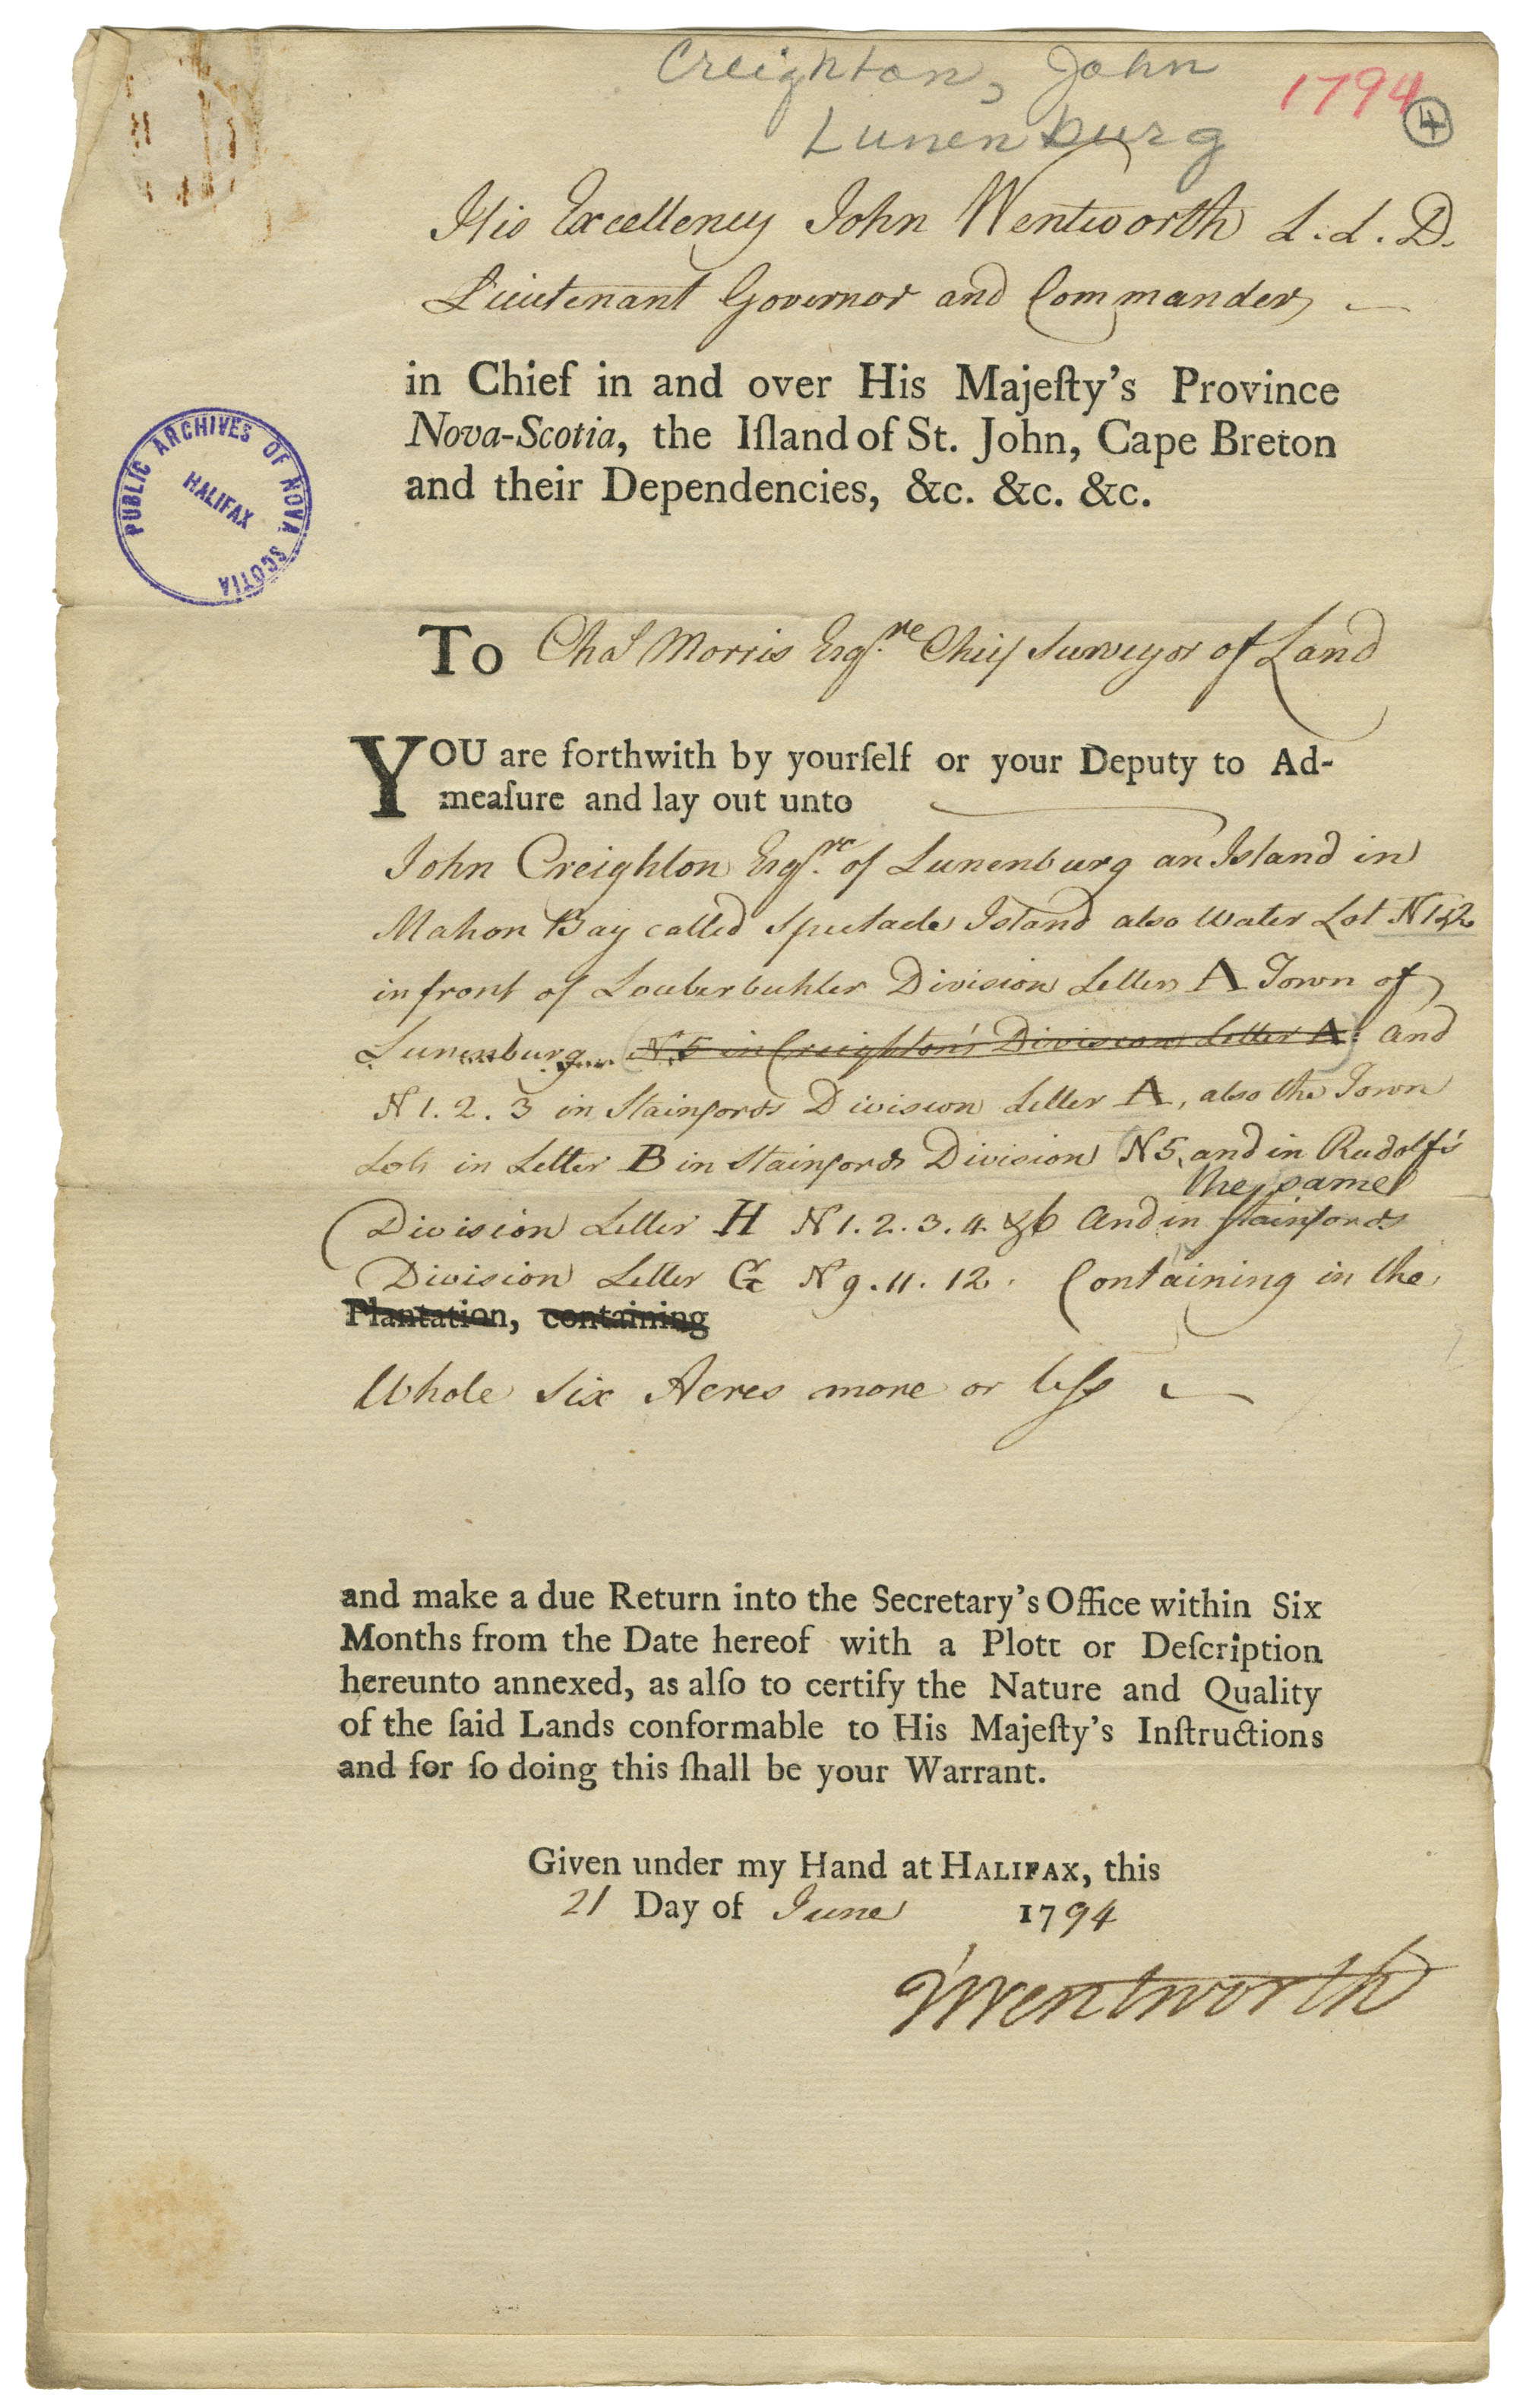 Creighton, John
Lunenburg
1794
4
His Excellency John Wentworth L.L.D.
Lieutenant Governor and Commander
in Chief in and over His Majeſty's Province
Nova-Scotia, the Iſland of St. John, Cape Breton
and their Dependencies, &c. &c. &c.
PUBLIC ARCHIVES OF NOVA SCOTIA
HALIFAX
To Chaˢ Morris Esqʳᵉ Chief Surveyor of Land
YOU are forthwith by yourſelf or your Deputy to Ad-
meaſure and lay out unto
John Creighton Esqʳᵉ of Lunenburg an Island in
Mahon Bay called Spectacle Island also Water Lot N
in front of Leuberbuhler Division Letter A Town of
Lunenburg N 5 in Creighton's Division Letter A and
N 1. 2. 3 in Stainfords Division Letter A, also the Town
Lots in Letter B in Stainfords Division N 5, and in Rudolf's
the same
Division Letter H N 1. 2. 3. 4. & 6 and in Stainfords
Division Letter G N 9. 11. 12. Containing in the
Plantation, containing
Whole Six Acres more or leſs
and make a due Return into the Secretary's Office within Six
Months from the Date hereof with a Plott or Deſcription
hereunto annexed, as alſo to certify the Nature and Quality
of the ſaid Lands conformable to His Majeſty's Inſtructions
and for ſo doing this ſhall be your Warrant.
Given under my Hand at HALIFAX, this
21 Day of June 1794
J Wentworth